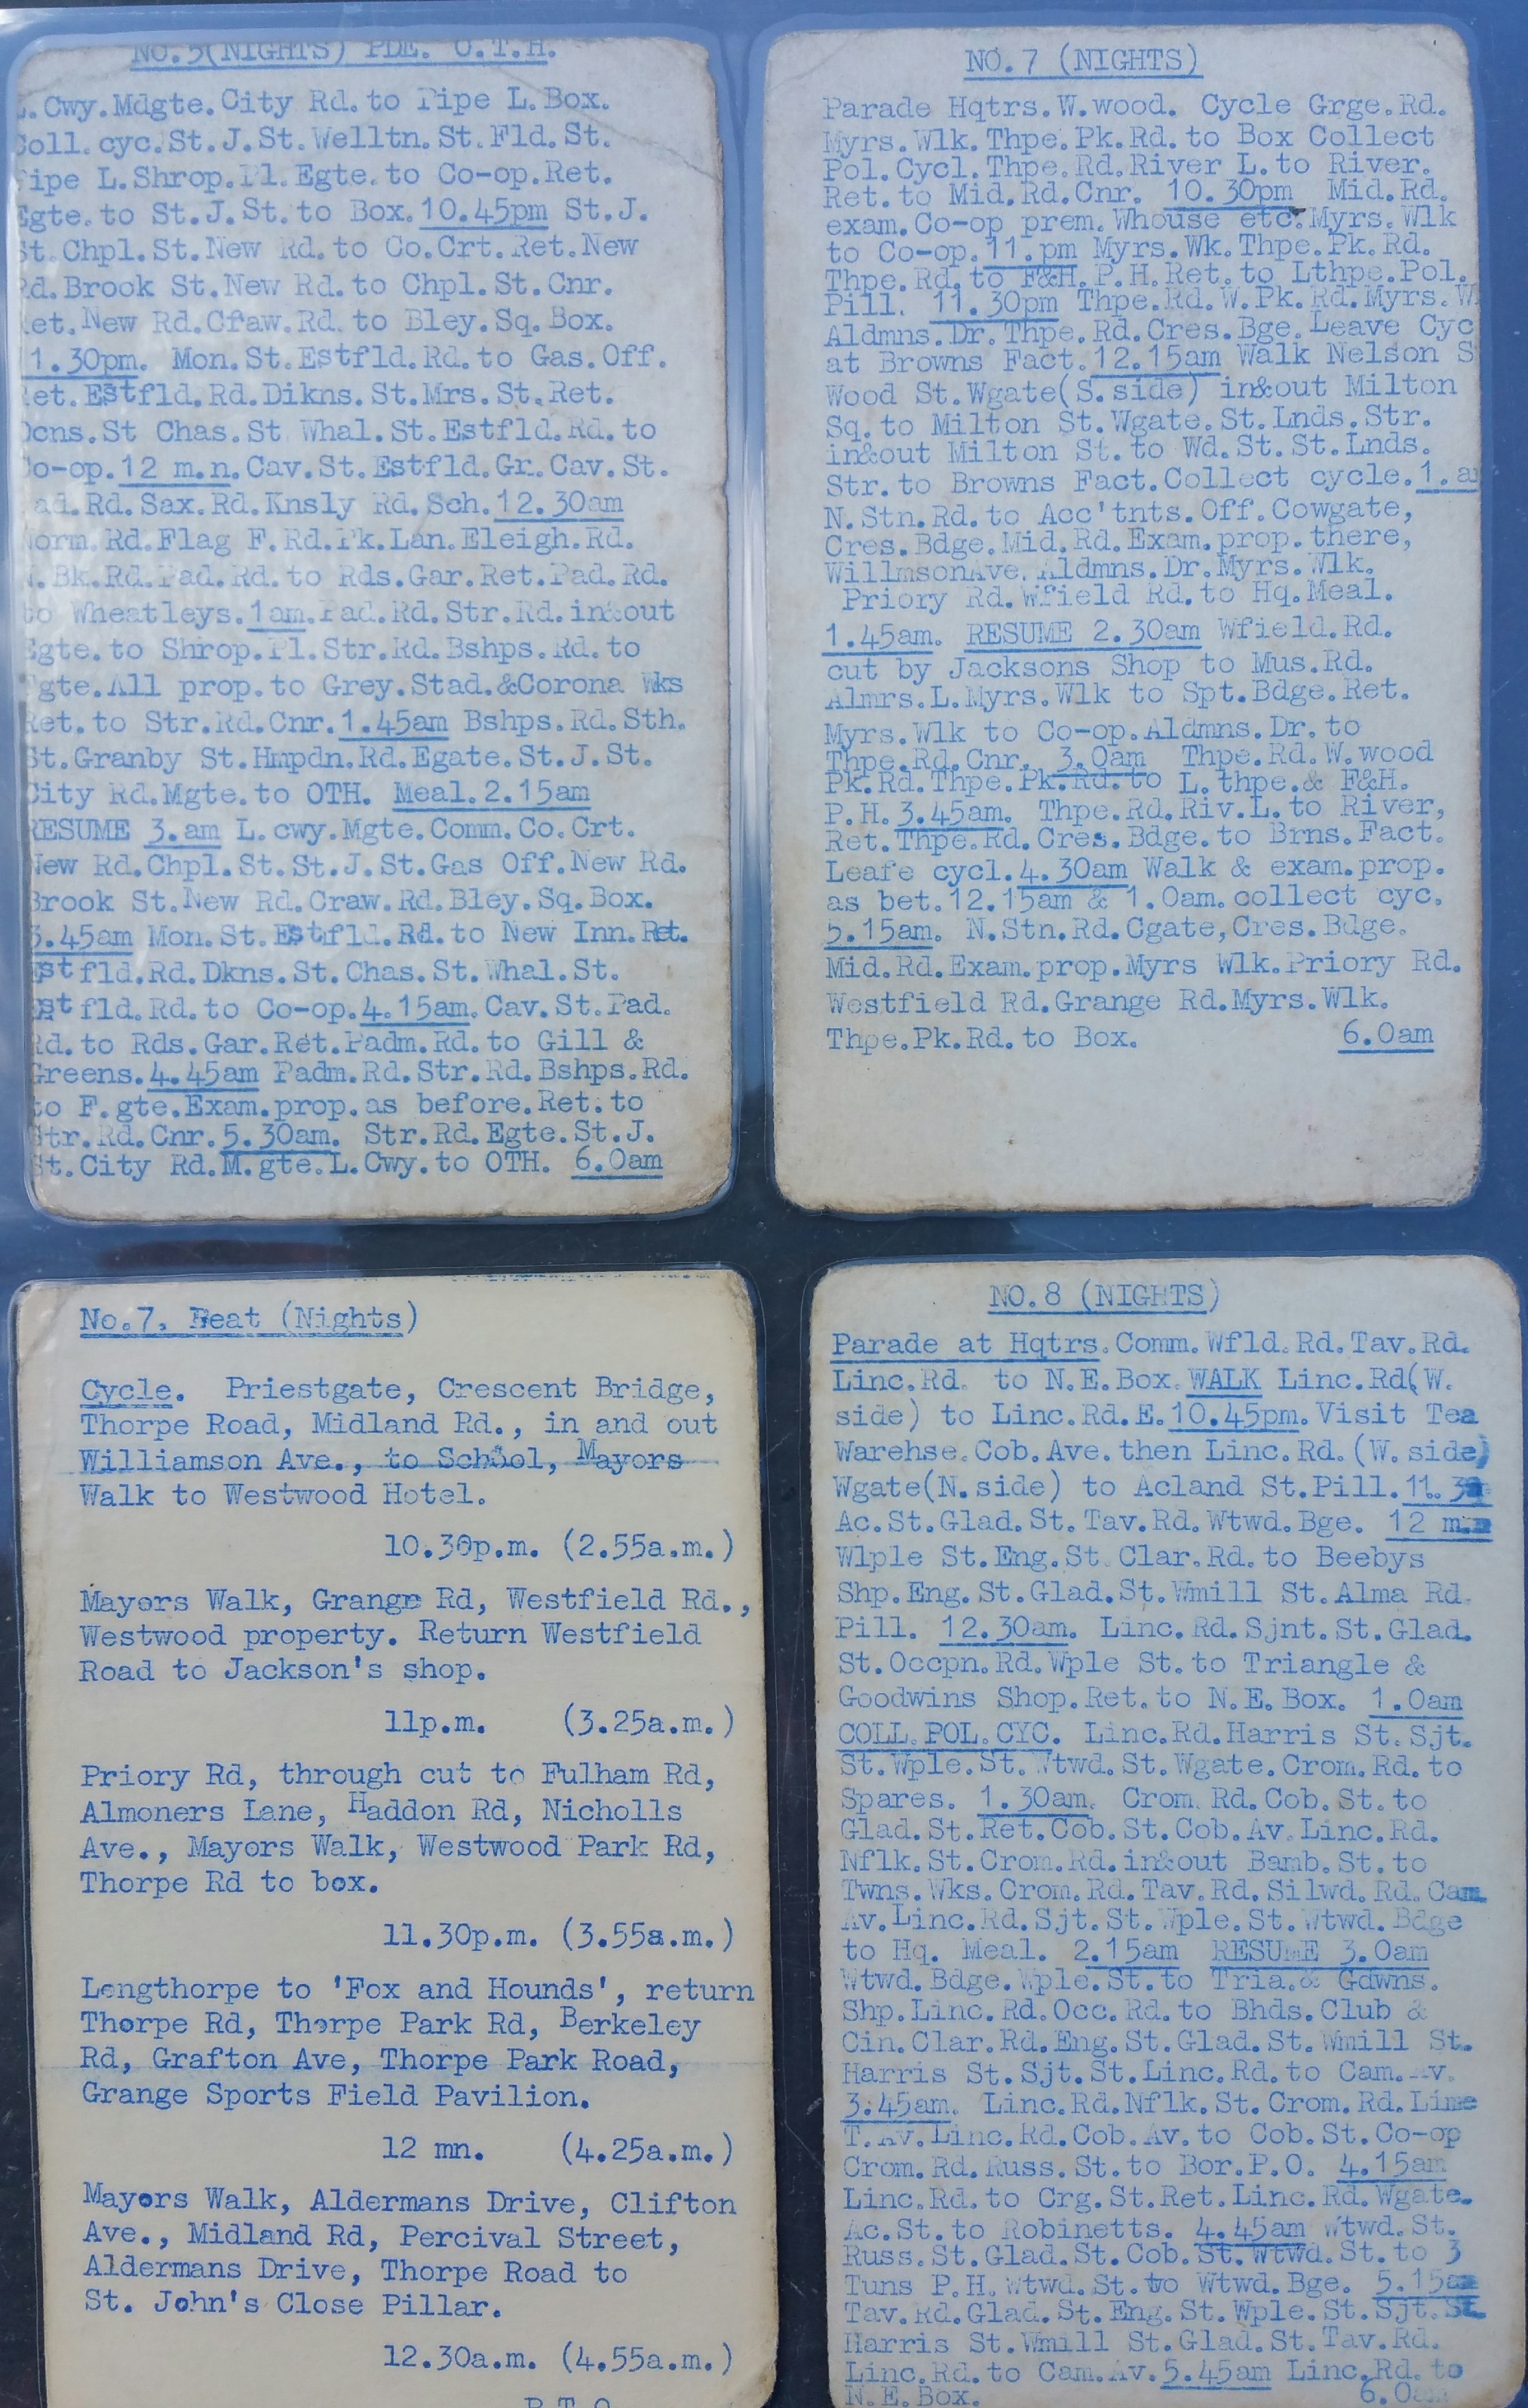 NO.5(NIGHTS) PDE. O.T.H.
L.Cwy.Mdgte.City Rd.to Pipe L.Box.
Coll.cyc.St.J.St.Welltn.St.Fld.St.
Pipe L.Shrop.Pl.Egte.to Co-op.Ret.
Egte.to St.J.St.to Box.10.45pm St.J.
St.Chpl.St.New Rd.to Co.Crt.Ret.New
Rd.Brook St.New Rd.to Chpl.St.Cnr.
Ret.New Rd.Craw.Rd.to Bley.Sq.Box.
11.30pm. Mon.St.Estfld.Rd.to Gas.Off.
Ret.Estfld.Rd.Dikns.St.Mrs.St.Ret.
Dcns.St Chas.St Whal.St.Estfld.Rd.to
Co-op.12 m.n.Cav.St.Estfld.Gr.Cav.St.
Pad.Rd.Sax.Rd.Knsly Rd.Sch.12.30am
Norm.Rd.Flag F.Rd.Pk.Lan.Eleigh.Rd.
N.Bk.Rd.Pad.Rd.to Rds.Gar.Ret.Pad.Rd.
to Wheatleys.1am.Pad.Rd.Str.Rd.in&out
Egte.to Shrop.Pl.Str.Rd.Bshps.Rd.to
Fgte.All prop.to Grey.Stad.&Corona Wks
Ret.to Str.Rd.Cnr.1.45am Bshps.Rd.Sth.
St.Granby St.Hmpdn.Rd.Egate.St.J.St.
City Rd.Mgte.to OTH. Meal.2.15am
RESUME 3.am L.cwy.Mgte.Comm.Co.Crt.
New Rd.Chpl.St.St.J.St.Gas Off.New Rd.
Brook St.New Rd.Craw.Rd.Bley.Sq.Box.
3.45am Mon.St.Estfld.Rd.to New Inn.Ret.
Estfld.Rd.Dkns.St.Chas.St.Whal.St.
Estfld.Rd.to Co-op.4.15am.Cav.St.Pad.
Rd.to Rds.Gar.Ret.Padm.Rd.to Gill &
Greens.4.45am Padm.Rd.Str.Rd.Bshps.Rd.
to F.gte.Exam.prop.as before.Ret.to
Str.Rd.Cnr.5.30am. Str.Rd.Egte.St.J.
St.City Rd.M.gte.L.Cwy.to OTH. 6.0am
NO.7 (NIGHTS)
Parade Hqtrs.W.wood. Cycle Grge.Rd.
Myrs.Wlk.Thpe.Pk.Rd.to Box Collect
Pol.Cycl.Thpe.Rd.River L.to River.
Ret.to Mid.Rd.Cnr. 10.30pm Mid.Rd.
exam.Co-op prem.Whouse etc.Myrs.Wlk
to Co-op.11.pm Myrs.Wk.Thpe.Pk.Rd.
Thpe.Rd.to F&H.P.H.Ret.to Lthpe.Pol.
Pill. 11.30pm Thpe.Rd.W.Pk.Rd.Myrs.W
Aldmns.Dr.Thpe.Rd.Cres.Bge.Leave Cyc
at Browns Fact.12.15am Walk Nelson S
Wood St.Wgate(S.side) in&out Milton
Sq.to Milton St.Wgate.St.Lnds.Str.
in&out Milton St.to Wd.St.St.Lnds.
Str.to Browns Fact.Collect cycle.1.am
N.Stn.Rd.to Acc'tnts.Off.Cowgate,
Cres.Bdge.Mid.Rd.Exam.prop.there,
WillmsonAve.Aldmns.Dr.Myrs.Wlk.
Priory Rd.Wfield Rd.to Hq.Meal.
1.45am. RESUME 2.30am Wfield.Rd.
cut by Jacksons Shop to Mus.Rd.
Almrs.L.Myrs.Wlk to Spt.Bdge.Ret.
Myrs.Wlk to Co-op.Aldmns.Dr.to
Thpe.Rd.Cnr. 3.0am Thpe.Rd.W.wood
Pk.Rd.Thpe.Pk.Rd.to L.thpe.& F&H.
P.H.3.45am. Thpe.Rd.Riv.L.to River,
Ret.Thpe.Rd.Cres.Bdge.to Brns.Fact.
Leafe cycl.4.30am Walk & exam.prop.
as bet.12.15am & 1.0am.collect cyc.
5.15am. N.Stn.Rd.Cgate,Cres.Bdge.
Mid.Rd.Exam.prop.Myrs Wlk.Priory Rd.
Westfield Rd.Grange Rd.Myrs.Wlk.
Thpe.Pk.Rd.to Box. 6.0am
No.7. Beat (Nights)
Cycle. Priestgate, Crescent Bridge,
Thorpe Road, Midland Rd., in and out
Williamson Ave., to School, Mayors
Walk to Westwood Hotel.
10.30p.m. (2.55a.m.)
Mayors Walk, Grange Rd, Westfield Rd.,
Westwood property. Return Westfield
Road to Jackson's shop.
11p.m. (3.25a.m.)
Priory Rd, through cut to Fulham Rd,
Almoners Lane, Haddon Rd, Nicholls
Ave., Mayors Walk, Westwood Park Rd,
Thorpe Rd to box.
11.30p.m. (3.55a.m.)
Longthorpe to 'Fox and Hounds', return
Thorpe Rd, Thorpe Park Rd, Berkeley
Rd, Grafton Ave, Thorpe Park Road,
Grange Sports Field Pavilion.
12 mn. (4.25a.m.)
Mayors Walk, Aldermans Drive, Clifton
Ave., Midland Rd, Percival Street,
Aldermans Drive, Thorpe Road to
St. John's Close Pillar.
12.30a.m. (4.55a.m.)
P.T.O.
NO.8 (NIGHTS)
Parade at Hqtrs.Comm.Wfld.Rd.Tav.Rd.
Linc.Rd. to N.E.Box.WALK Linc.Rd(W.
side) to Linc.Rd.E.10.45pm.Visit Tea
Warehse.Cob.Ave.then Linc.Rd.(W.side)
Wgate(N.side) to Acland St.Pill.11.30
Ac.St.Glad.St.Tav.Rd.Wtwd.Bge. 12 m.n
Wlple St.Eng.St.Clar.Rd.to Beebys
Shp.Eng.St.Glad.St.Wmill St.Alma Rd.
Pill. 12.30am. Linc.Rd.Sjnt.St.Glad.
St.Occpn.Rd.Wple St.to Triangle &
Goodwins Shop.Ret.to N.E.Box. 1.0am
COLL.POL.CYC. Linc.Rd.Harris St.Sjt.
St.Wple.St.Wtwd.St.Wgate.Crom.Rd.to
Spares. 1.30am. Crom.Rd.Cob.St.to
Glad.St.Ret.Cob.St.Cob.Av.Linc.Rd.
Nflk.St.Crom.Rd.in&out Bamb.St.to
Twns.Wks.Crom.Rd.Tav.Rd.Silwd.Rd.Cam.
Av.Linc.Rd.Sjt.St.Wple.St.Wtwd.Bdge
to Hq. Meal. 2.15am RESUME 3.0am
Wtwd.Bdge.Wple.St.to Tria.& Gdwns.
Shp.Linc.Rd.Occ.Rd.to Bhds.Club &
Cin.Clar.Rd.Eng.St.Glad.St.Wmill St.
Harris St.Sjt.St.Linc.Rd.to Cam.Av.
3.45am. Linc.Rd.Nflk.St.Crom.Rd.Lime
T.Av.Linc.Rd.Cob.Av.to Cob.St.Co-op
Crom.Rd.Russ.St.to Bor.P.O. 4.15am
Linc.Rd.to Crg.St.Ret.Linc.Rd.Wgate.
Ac.St.to Robinetts. 4.45am Wtwd.St.
Russ.St.Glad.St.Cob.St.Wtwd.St.to 3
Tuns P.H.Wtwd.St.to Wtwd.Bge. 5.15am
Tav.Rd.Glad.St.Eng.St.Wple.St.Sjt.St.
Harris St.Wmill St.Glad.St.Tav.Rd.
Linc.Rd.to Cam.Av.5.45am Linc.Rd.to
N.E.Box. 6.0am